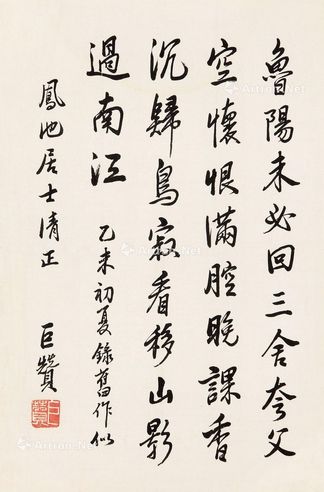 魯陽未必回三舍夸父
空懷恨滿腔晚課香
沉歸鳥寂看移山影
過南江
乙未初夏錄舊作似
鳳池居士清正
巨贊
巨贊